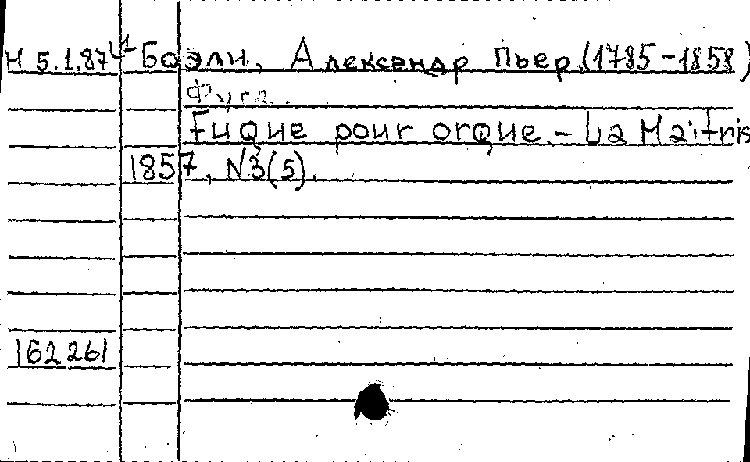 Н 5.1.874 Боэли, Александр Пьер (1785-1858)
Фуга.
Fuque pour orque. - La Maîtris
1857, N3(5).
162261